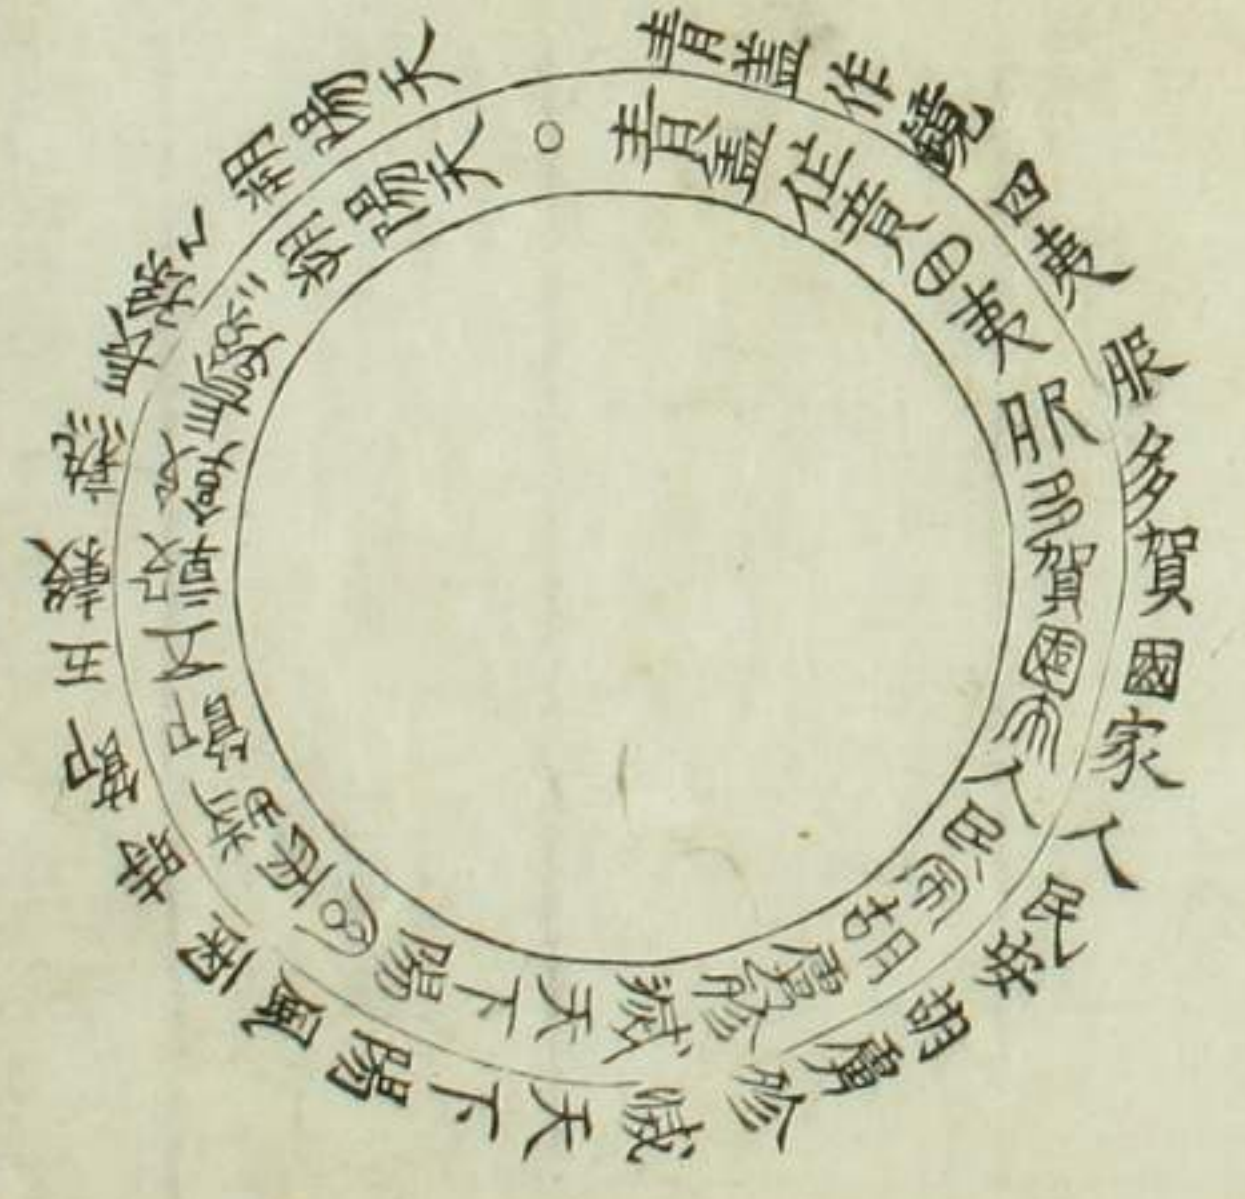 青盖作鏡四夷服多賀國家人民安胡虜殄滅天下陽風雨時節五穀熟長保二天
青盖作竟四夷服多賀國家人民安胡虜殄滅天下陽風雨時節五穀熟長保二天